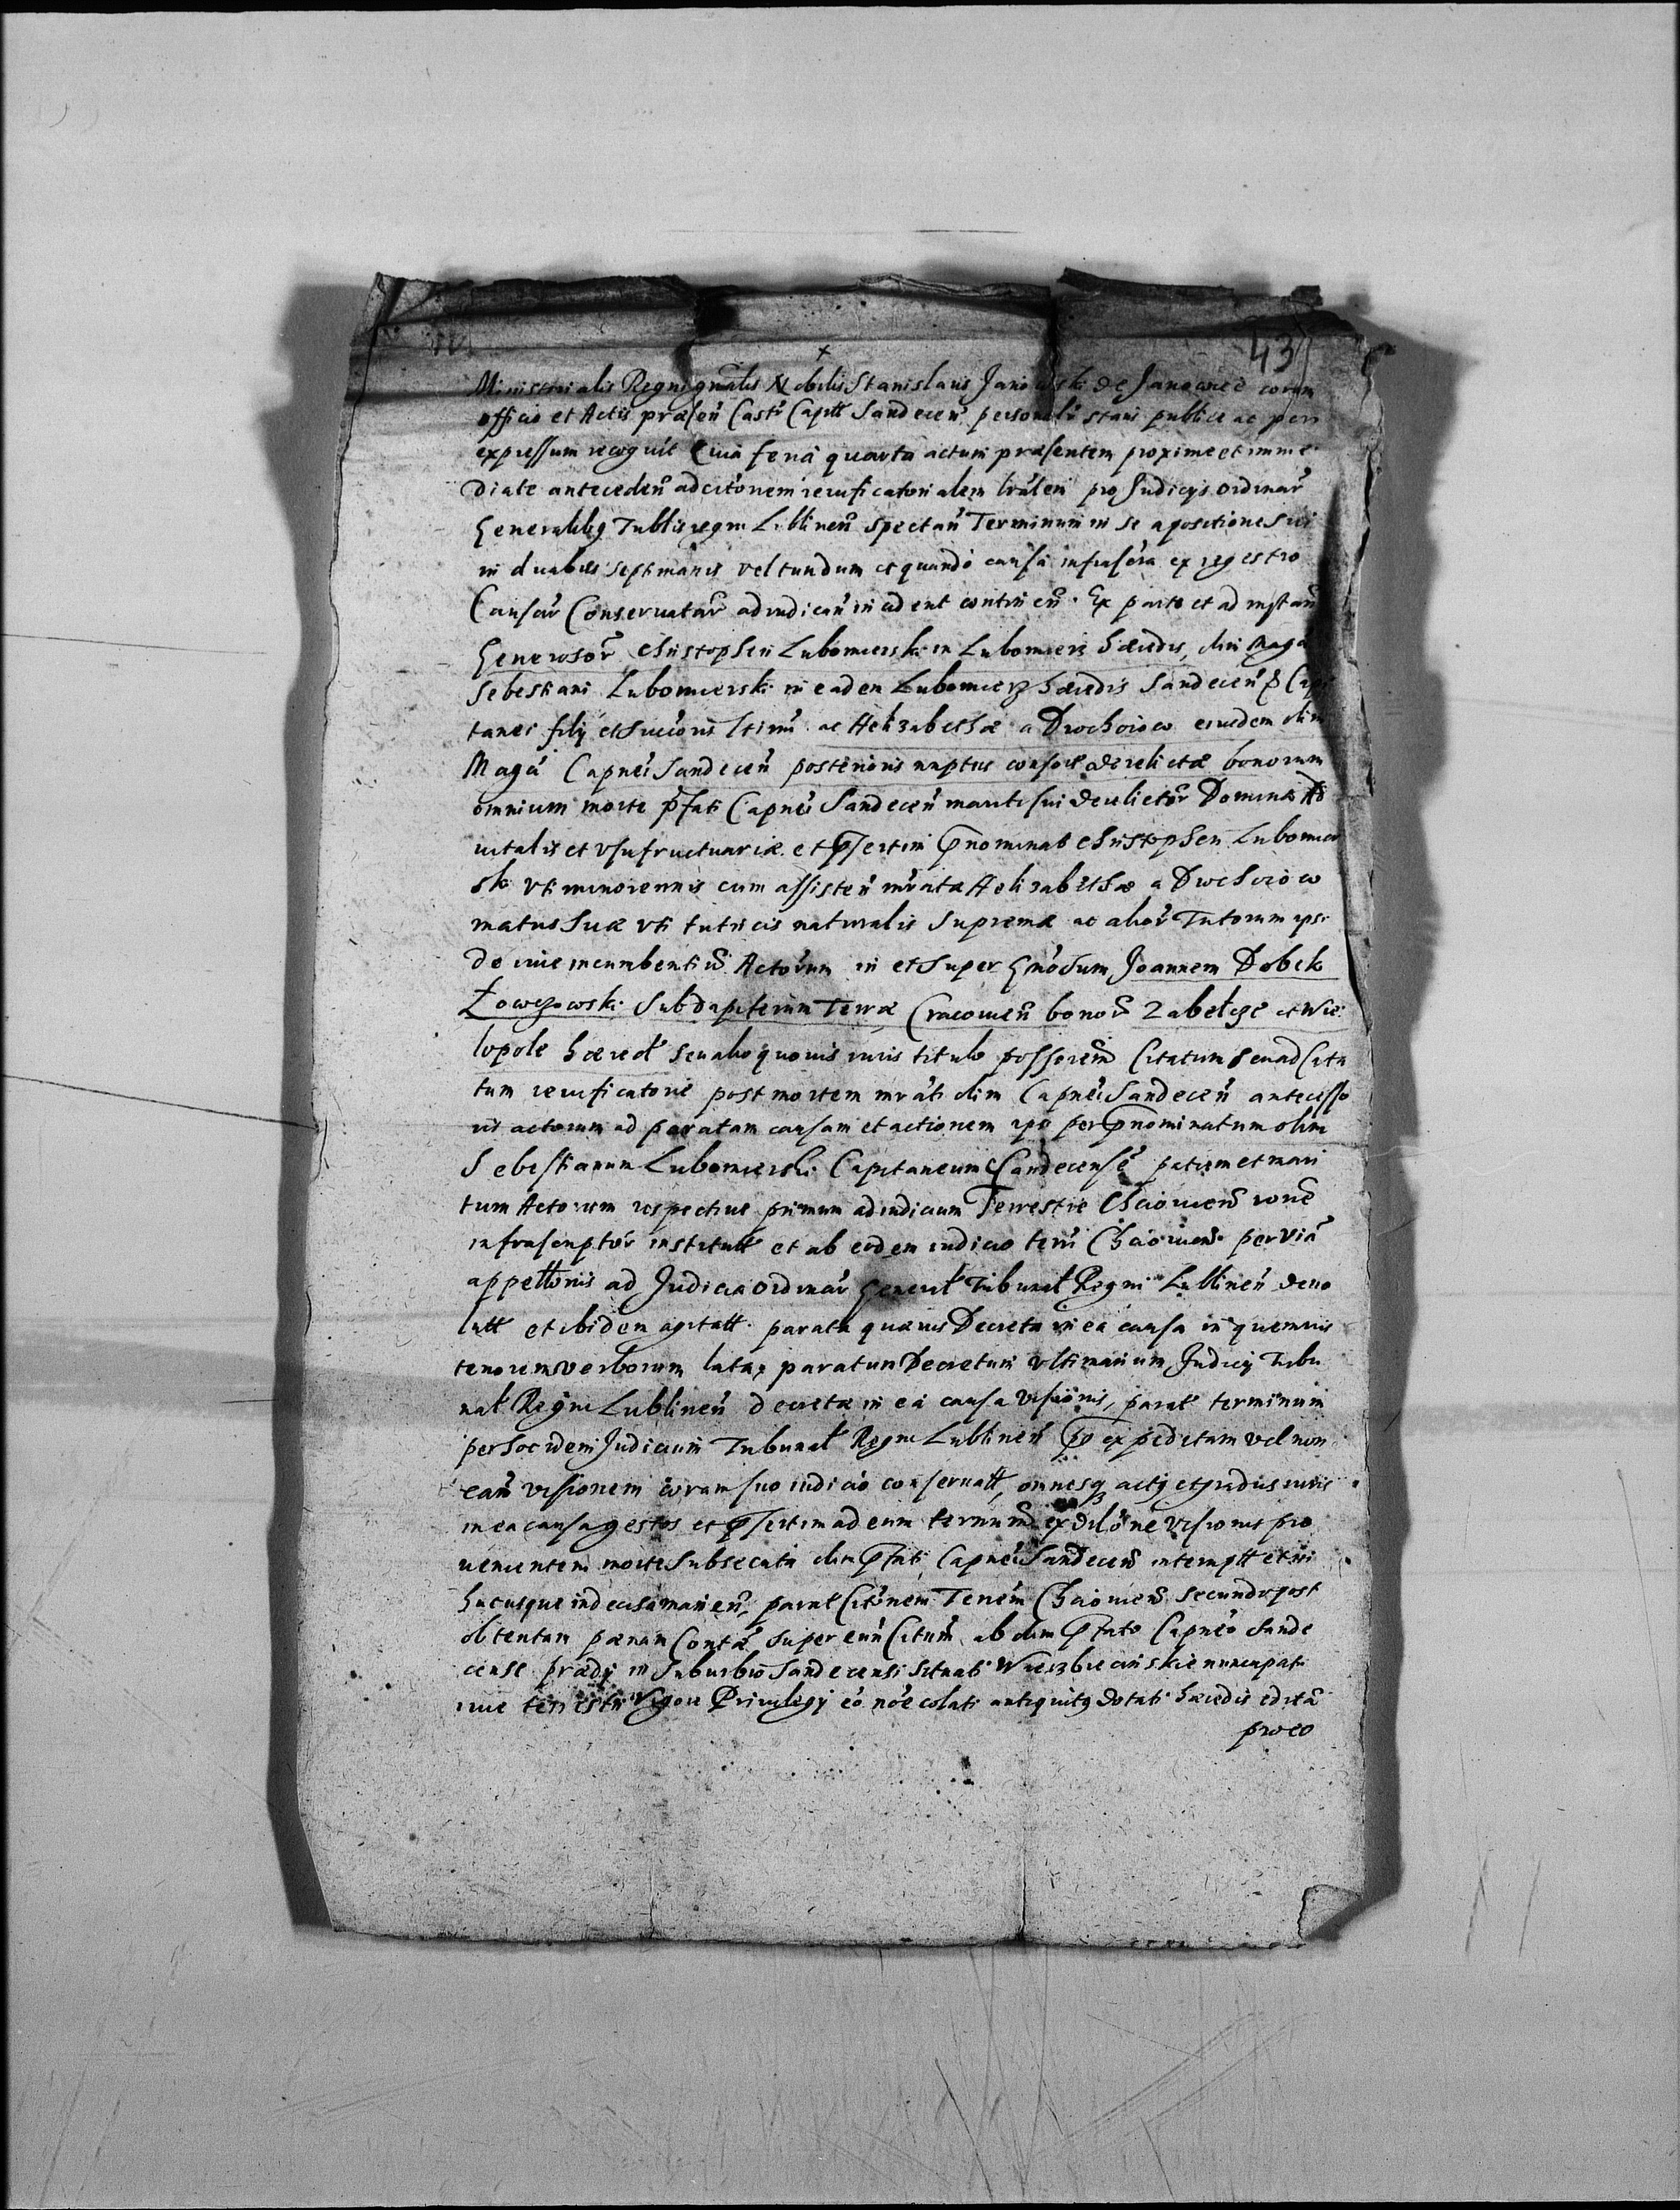 43
Ministerialis Regni gnalis Nobilis Stanislaus Janowski de Janowice coram
officio et Actis præsen Castr Captt Sandecen personalr stans publice ac per
expressum recognit Quia feria quarta actum præsentem proxime et imme
diate anteceden ad citonem reuificatorialem lralem pro Judicys ordinar
Generalibg Tutblis regni Lublinen spectan Terminum in se a positione sui
in duabus septimanis vel tundum et quando causa infrascra ex regestro
Causar Conseruatar adiudican inciderit continen. Ex parte et ad instan
Generosor Christopheri Lubomierski in Lubomierz hæredis, olim Maga
Sebestiani Lubomierski in eadem Lubomierz hæredis Sandecen Capi
tanei filij et Succoris ltimi ac Helizabethæ a Drochoiow eiusdem olim
Maga Capnei Sandecen posterioris nuptus consortis derelictæ bonorum
omnium morte pfati Capnei Sandecen mariti sui derelictor Dominæ Ad
uitalis et vsufructuariæ et psertim pnominat Christopheri Lubomier
ski vti minorennis cum assisten mrata Helizabethæ a Drochoiow
matris Suæ vti tutricis naturalis Supremæ ac alior Tutorum ipsi
de iure incumbentiu Actorum in et super Gnosum Joannem Dobek
Łowczowski Subdapiferum Terræ Cracouien bonor Zabełcze et Wie
lopole hæred seu alio quouis iuris titulo possorem Citatum seu ad Cita
tum reuificatorie post mortem mrati olim Capnei Sandecen antecesso
ris actorum ad paratam causam et actionem ipo per pnominatum olim
Sebestianum Lubomierski Capitaneum Sandecense patrem et mari
tum Actorum respectiue primum ad iudicium Terrestre Czchouien rone
infrascriptor institutt et ab eodem iudicio terri Czchouien per via
appettonis ad Judicia ordinar Generał Tribunał Regni Lublinen deuo
lutt et ibidem agitatt parata quæuis Decreta in ea causa in quemuis
tenorem verborum lata, paratum Decretum vltimarium Judicij Tribu
nał Regni Lublinen decretæ in ea causa visionis, parat terminum
per hoc idem Judicium Tribunał Regni Lublinen p expeditam vel non
eam visionem coram suo iudicio conseruatt, omnesq actg et gradus iuris
in ea causa gestos et psertim ad eum terminum ex dilone visionis pro
uenientem morte subsecuta olim pfati Capnei Sandecen interuptt et in
hucusque indecisa manen, parat Citonem Terrem Czchouien secundo post
obtentam pænam Contæ super eun Citum ab olim pfato Capneo Sande
cense prædij in Suburbio Sandecensi situati Wierzbiecinskie nuncupati
iure terrestri Vigore Priuilegij eo noe colati antiquitg dotati hæredis edita
pro eo